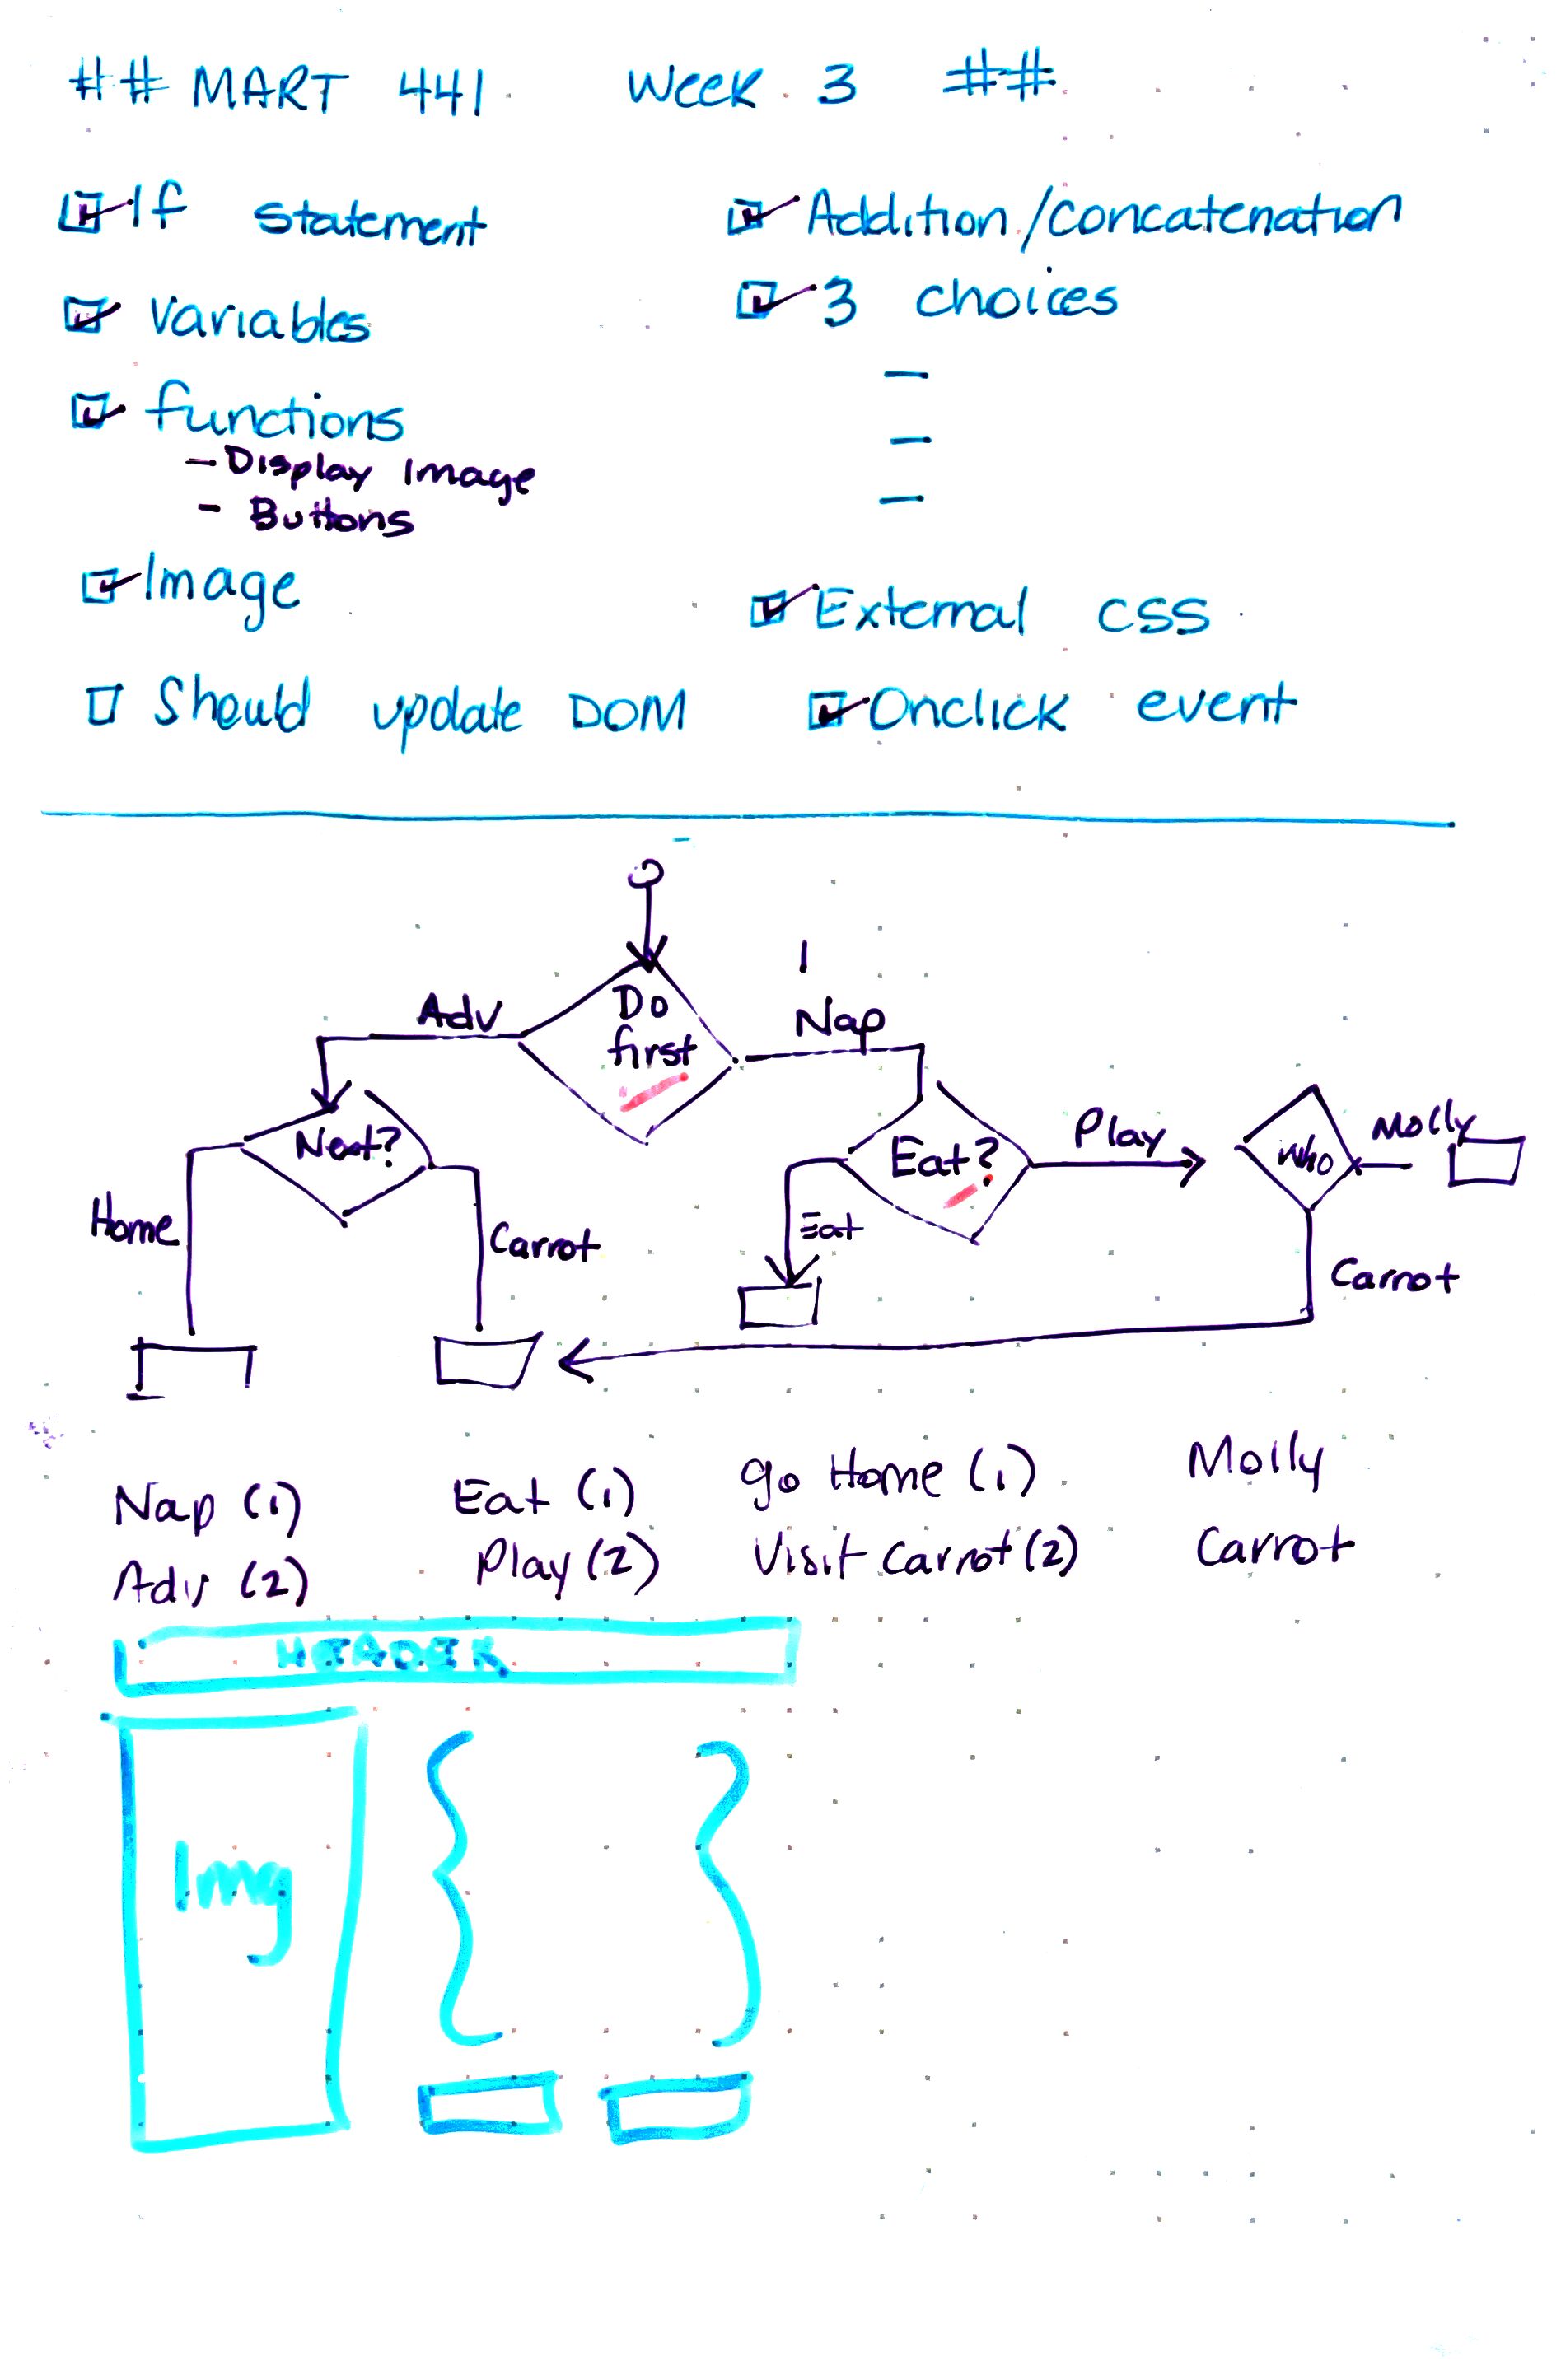 ## MART 441 Week 3 ##
If statement
Variables
functions
- Display Image
- Buttons
Image
Should update DOM
Addition/concatenation
3 choices
–
–
–
External css
Onclick event
Do
first
Adv
1
Nap
Next?
Home
Carrot
Eat?
Eat
Play
who
Molly
Carrot
Nap (1)
Adv (2)
Eat (1)
Play (2)
go Home (1)
Visit Carrot (2)
Molly
Carrot
HEADER
Img